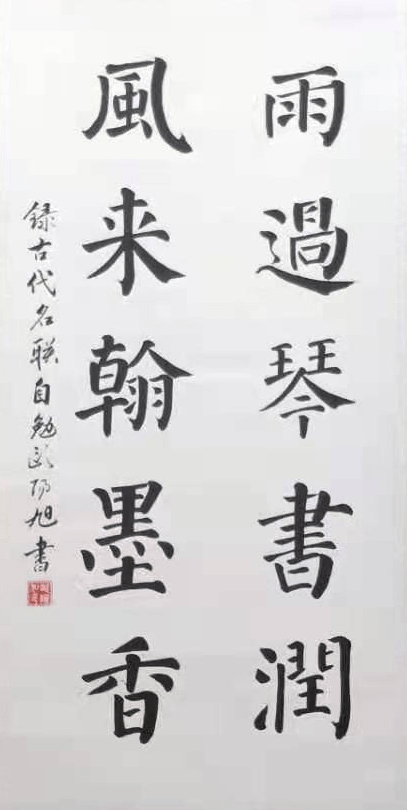 雨過琴書潤
風来翰墨香
録古代名联自勉欧阳旭書